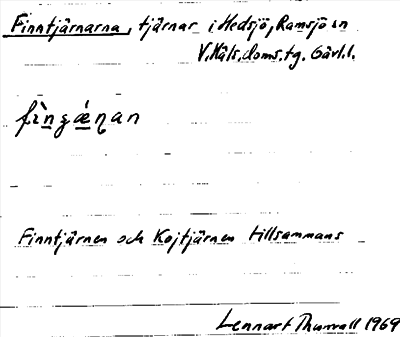 Finntjärnarna, tjärnar i Hedsjö, Ramsjö sn
V. Häls. doms. tg. Gävl. l.
fìnzǽṇan
Finntjärnen och Kojtjärnen tillsammans
Lennart Thurvall 1969